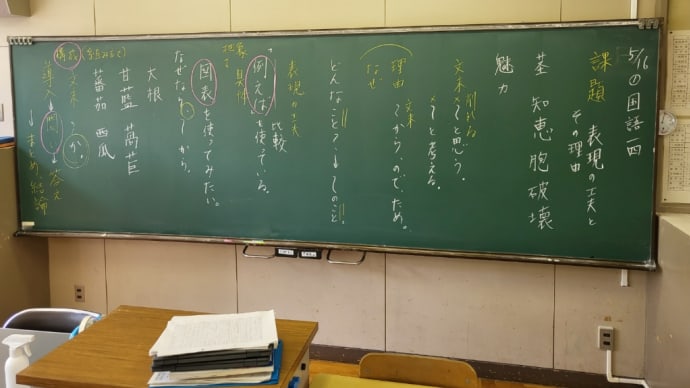 5/16の国語四
課題 表現の工夫と
その理由
茎 知恵 胞 破壊
魅力
削れる
文末 〜と思う。
〜と考える。
文末
理由 〜から、ので、ため。
なぜ
どんなこと?→〜のこと。
表現の工夫
比較
「例えば」を使っている。
具体
図表を使ってみたい。
なぜなら〜から。
大根
甘藍 萵苣
蕃茄 西瓜
構成
文末 〜か。
導入→問→答え
→まとめ 結論